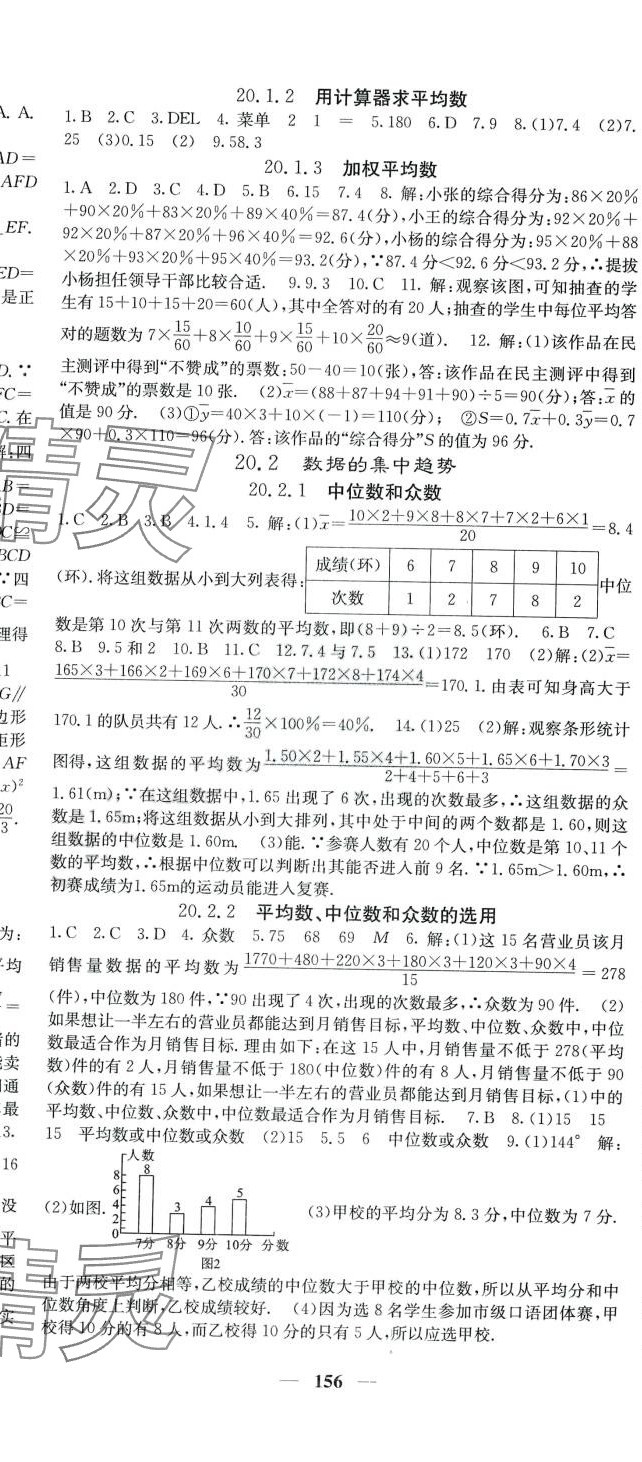 20.1.2 用计算器求平均数
1.B 2.C 3.DEL 4.菜单 2 1 = 5.180 6.D 7.9 8.(1)7.4 (2)7.
25 (3)0.15 (2) 9.58.3
20.1.3 加权平均数
1.A 2.D 3.C 4.D 5.B 6.15 7.4 8.解:小张的综合得分为:86×20%
+90×20%+83×20%+89×40%=87.4(分),小王的综合得分为:92×20%+
92×20%+87×20%+96×40%=92.6(分),小杨的综合得分为:95×20%+88
×20%+93×20%+95×40%=93.2(分),∵87.4分<92.6分<93.2分,∴提拔
小杨担任领导干部比较合适. 9.9.3 10.C 11.解:观察该图,可知抽查的学
生有15+10+15+20=60(人),其中全答对的有20人;抽查的学生中每位平均答
对的题数为7×15/60+8×10/60+9×15/60+10×20/60≈9(道). 12.解:(1)该作品在民
主测评中得到“不赞成”的票数:50-40=10(张),答:该作品在民主测评中得到
“不赞成”的票数是10张. (2)x̄=(88+87+94+91+90)÷5=90(分);答:x̄的
值是90分. (3)①ȳ=40×3+10×(-1)=110(分); ②S=0.7x̄+0.3ȳ=0.7
×90+0.3×110=96(分).答:该作品的“综合得分”S的值为96分.
20.2 数据的集中趋势
20.2.1 中位数和众数
1.C 2.B 3.B 4.1.4 5.解:(1)x̄=(10×2+9×8+8×7+7×2+6×1)/20=8.4
(环).将这组数据从小到大列表得:
成绩(环) 6 7 8 9 10
次数 1 2 7 8 2
中位
数是第10次与第11次两数的平均数,即(8+9)÷2=8.5(环). 6.B 7.C
8.B 9.5和2 10.B 11.C 12.7.4与7.5 13.(1)172 170 (2)解:(2)x̄=
(165×3+166×2+169×6+170×7+172×8+174×4)/30=170.1.由表可知身高大于
170.1的队员共有12人.∴12/30×100%=40%. 14.(1)25 (2)解:观察条形统计
图得,这组数据的平均数为(1.50×2+1.55×4+1.60×5+1.65×6+1.70×3)/(2+4+5+6+3)=
1.61(m);∵在这组数据中,1.65出现了6次,出现的次数最多,∴这组数据的众
数是1.65m;将这组数据从小到大排列,其中处于中间的两个数都是1.60,则这
组数据的中位数是1.60m. (3)能.∵参赛人数有20个人,中位数是第10、11个
数的平均数,∴根据中位数可以判断出其能否进入前9名.∵1.65m>1.60m,∴
初赛成绩为1.65m的运动员能进入复赛.
20.2.2 平均数、中位数和众数的选用
1.C 2.C 3.D 4.众数 5.75 68 69 M 6.解:(1)这15名营业员该月
销售量数据的平均数为(1770+480+220×3+180×3+120×3+90×4)/15=278
(件),中位数为180件,∵90出现了4次,出现的次数最多,∴众数为90件. (2)
如果想让一半左右的营业员都能达到月销售目标,平均数、中位数、众数中,中位
数最适合作为月销售目标.理由如下:在这15人中,月销售量不低于278(平均
数)件的有2人,月销售量不低于180(中位数)件的有8人,月销售量不低于90
(众数)件的有15人,如果想让一半左右的营业员能达到月销售目标,(1)中的
平均数、中位数、众数中,中位数最适合作为月销售目标. 7.B 8.(1)15 15
15 平均数或中位数或众数 (2)15 5.5 6 中位数或众数 9.(1)144° 解:
(2)如图.
人数
8
6
4
2
0
8 3 4 5
7分 8分 9分 10分 分数
图2
(3)甲校的平均分为8.3分,中位数为7分.
由于两校平均分相等,乙校成绩的中位数大于甲校的中位数,所以从平均分和中
位数角度上判断,乙校成绩较好. (4)因为选8名学生参加市级口语团体赛,甲
校得10分的有8人,而乙校得10分的只有5人,所以应选甲校.
— 156 —
精灵
精灵